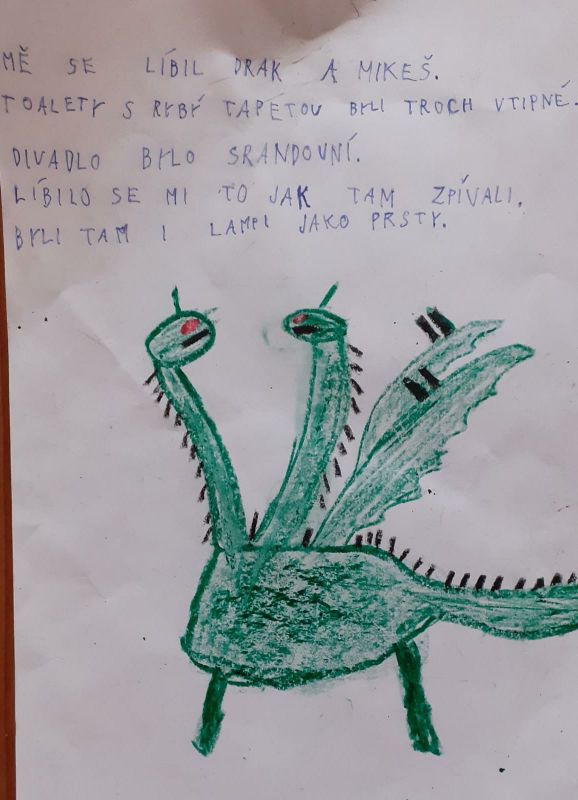 MĚ SE LÍBIL DRAK A MIKEŠ.
TOALETY S RYBÝ TAPETOU BYLI TROCH VTIPNÉ.
DIVADLO BYLO SRANDOVNÍ.
LÍBILO SE MI TO JAK TAM ZPÍVALI.
BYLI TAM I LAMPI JAKO PRSTY.